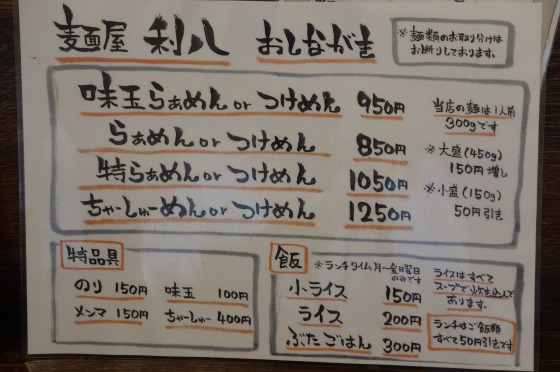 麺屋 利八 おしながき
※麺類のお取り分けは
お断りしております。
味玉らぁめん or つけめん 950円
らぁめん or つけめん 850円
特らぁめん or つけめん 1050円
ちゃーしゅーめん or つけめん 1250円
当店の麺は1人前
300gです
※大盛(450g)
150円増し
※小盛(150g)
50円引き
特品具
のり 150円 味玉 100円
メンマ 150円 ちゃーしゅー 400円
飯
※ランチタイム月〜金曜日
のみです
小ライス 150円
ライス 200円
ぶたごはん 300円
ライスはすべて
スープで炊き込んで
おります。
ランチはご飯類
すべて50円引きです